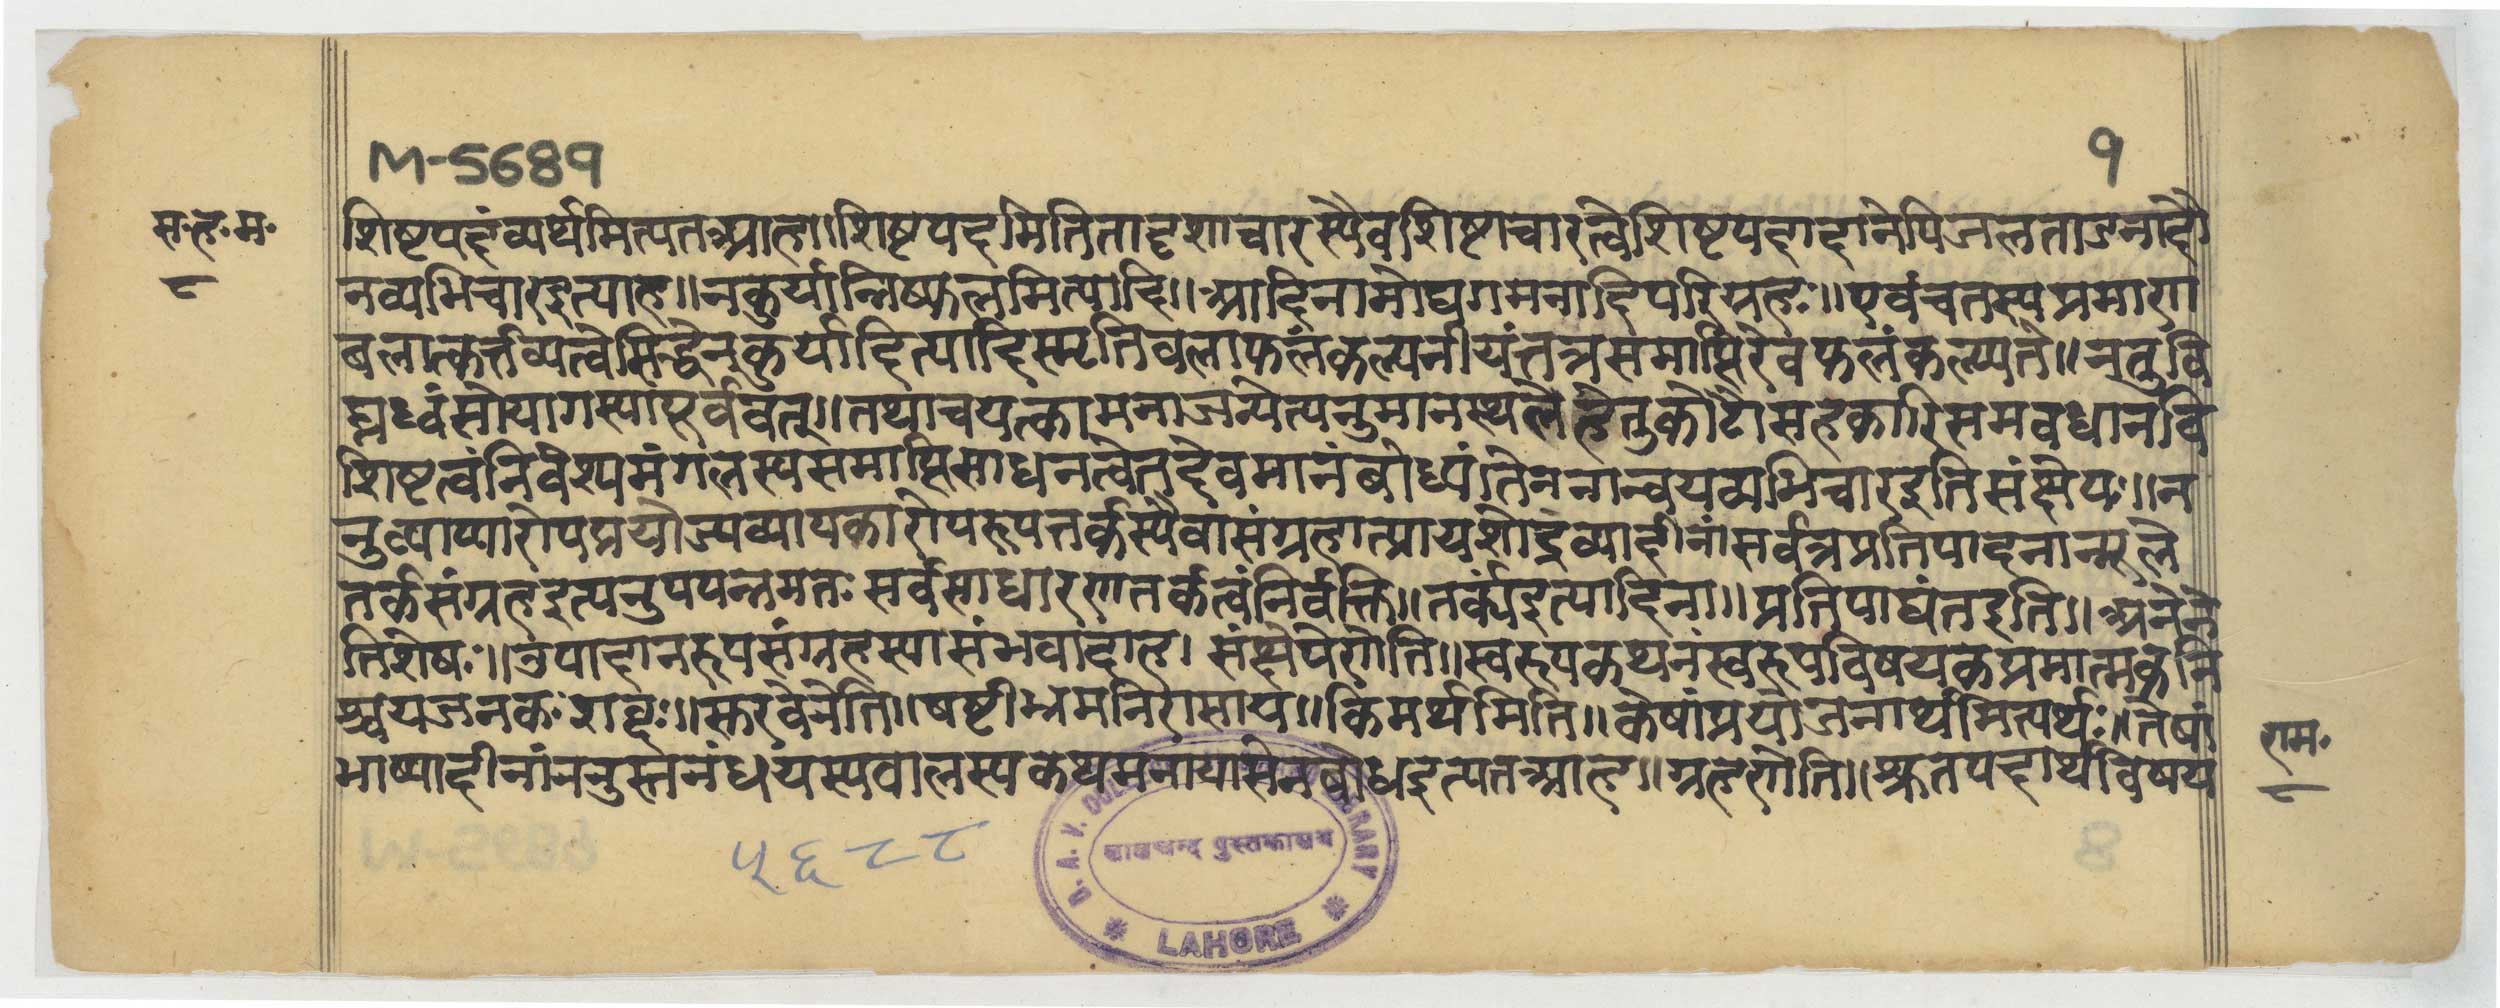 M-5689
१
स॰ह॰म॰
८
शिष्टपदंव्यर्थमित्यतआह॥शिष्टपदमितितादृशाचारस्यैवशिष्टाचारत्वेशिष्टपदादानेपिजलताडनादौ
नव्यभिचारइत्याह॥नकुर्यान्निष्फलमित्यादि॥आदिनामोघगमनादिपरिग्रहः॥एवंचतस्यप्रमाणा
बलात्कर्त्तव्यत्वेसिद्धेनकुर्यादित्यादिस्मृतिवलाफलंकल्पनीयंतत्रसमाप्तिरेवफलंकल्प्यते॥नतुवि
घ्नध्वंसोयागस्यापूर्ववत्॥तथाचयत्कामनाजन्येत्यनुमानस्थलेहेतुकोटौसहकारिसमवधानवि
शिष्टत्वंनिवेश्यमंगलस्यसमाप्तिसाधनत्वेतदेवमानंबोध्यंतेननान्वयव्यभिचारइतिसंक्षेपः॥न
नुव्याप्यारोपप्रयोज्यव्यापकारोपरूपतर्कस्यैवासंग्रहात्प्रायशोद्रव्यादीनांसर्वत्रप्रतिपादनान्मूले
तर्कसंग्रहइत्यनुपपन्नमतः सर्वसाधारणतर्कत्वंनिर्वक्ति॥तर्क्यंइत्यादिना॥प्रतिपाद्यंतइति॥अनेने
तिशेषः॥उपादानरूपसंग्रहस्यासंभवादाह। संक्षेपेणेति॥स्वरूपकथनंस्वरूपविषयकप्रमात्मकनि
श्चयजनकः शब्दः॥स्तरवेनेति॥षष्टीभ्रमनिरासाय॥किमर्थमिति॥केषांप्रयोजनार्थमित्यर्थः॥तेषां
भाष्यादीनांननुस्तनंधयस्यवालस्यकथमनायासेनबोधइत्यतआह॥ग्रहणेति॥श्रुतपदार्थविषय
राम॰
८
५६८८
D. A. V.
लालचन्द पुस्तकालय
LIBRARY
LAHORE